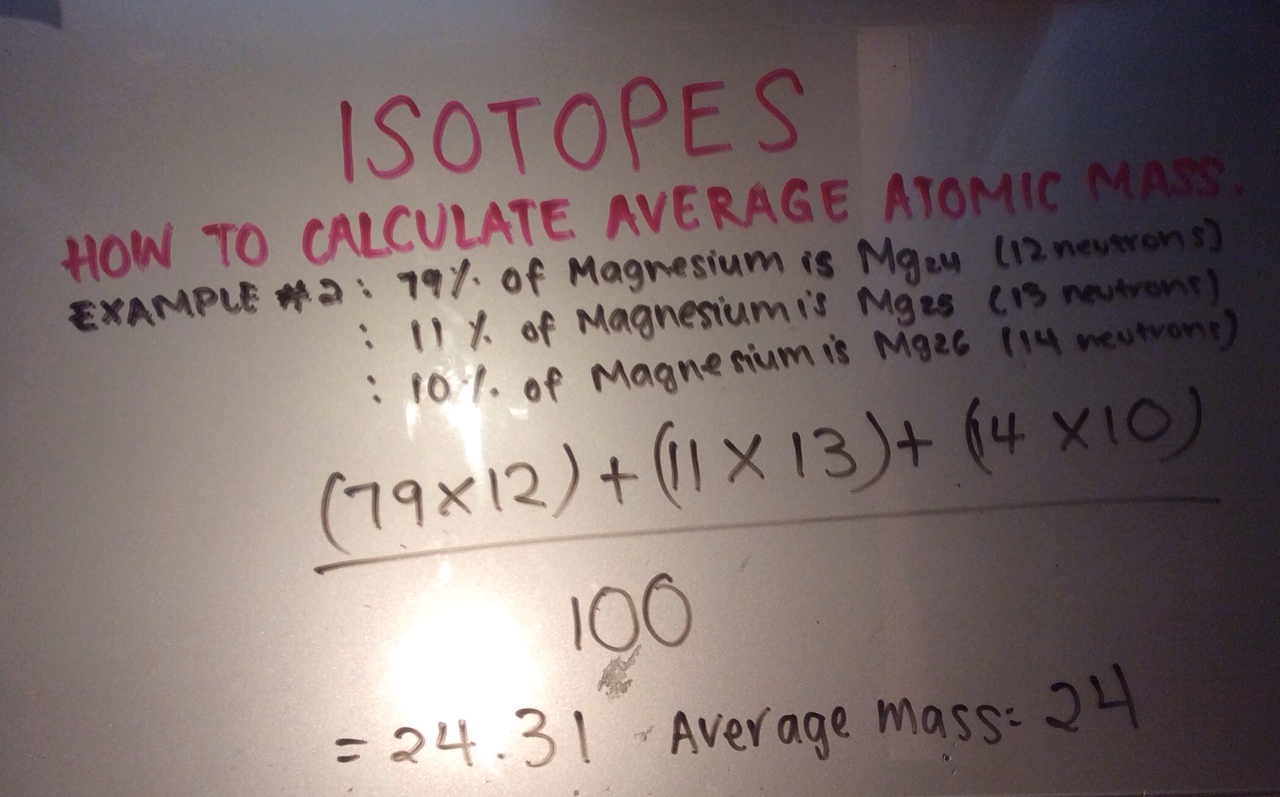 ISOTOPES
HOW TO CALCULATE AVERAGE ATOMIC MASS.
EXAMPLE #2: 79% of Magnesium is Mg24 (12 neutrons)
: 11% of Magnesium is Mg25 (13 neutrons)
: 10% of Magnesium is Mg26 (14 neutrons)
(79×12)+(11×13)+(14×10)
100
=24.31 Average mass: 24